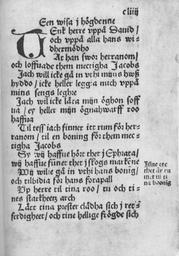 cliiij
Een wisa j högdenne
Tenck herre vppå Dauid/
och vppå alla hans wi
dhermödho
At han swor herranom/
och loffuade them mectigha Jacobs
Jach will icke gå in vthi mijns hwss
hyddo/icke heller leggia mich vppå
mins sengs leghre
Jach will icke låta mijn öghon soff
ua/ey heller mijn öghnahwarff roo
haffua
Til tess iach finner itt rum för her
ranom/til en boning för them mec
tigha Jacobs
Sy wij haffue hört thet j Ephrata/
wij haffue funnet thet j skogs markene
Wij wilie gå in vthi hans bonig/
och tilbidia för hans forapall
Vp herre til tina roo/tu och ti
nes starkheetz arch
Låt tina prester clädha sich j ret
ferdigheet/och tine helige frögde sich